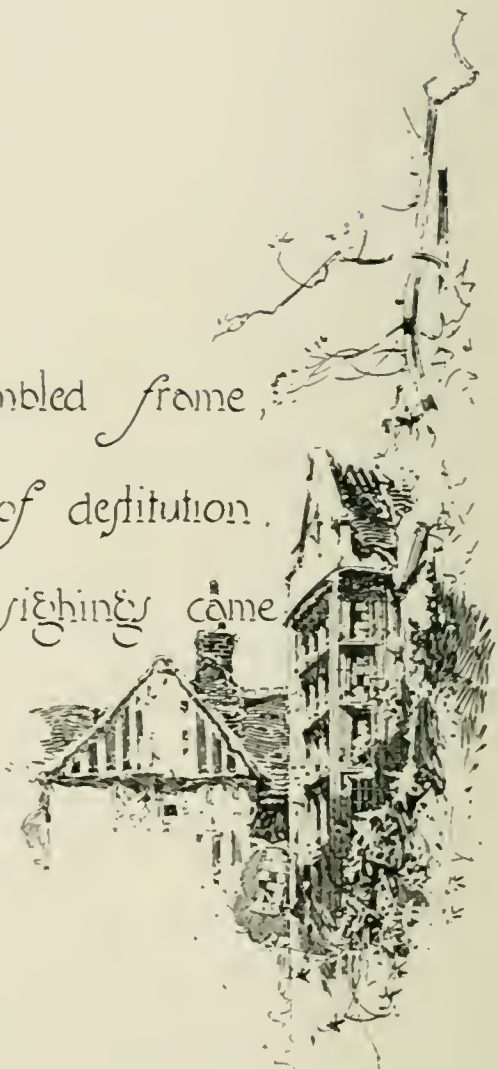 frame,
of destitution.
sighings came